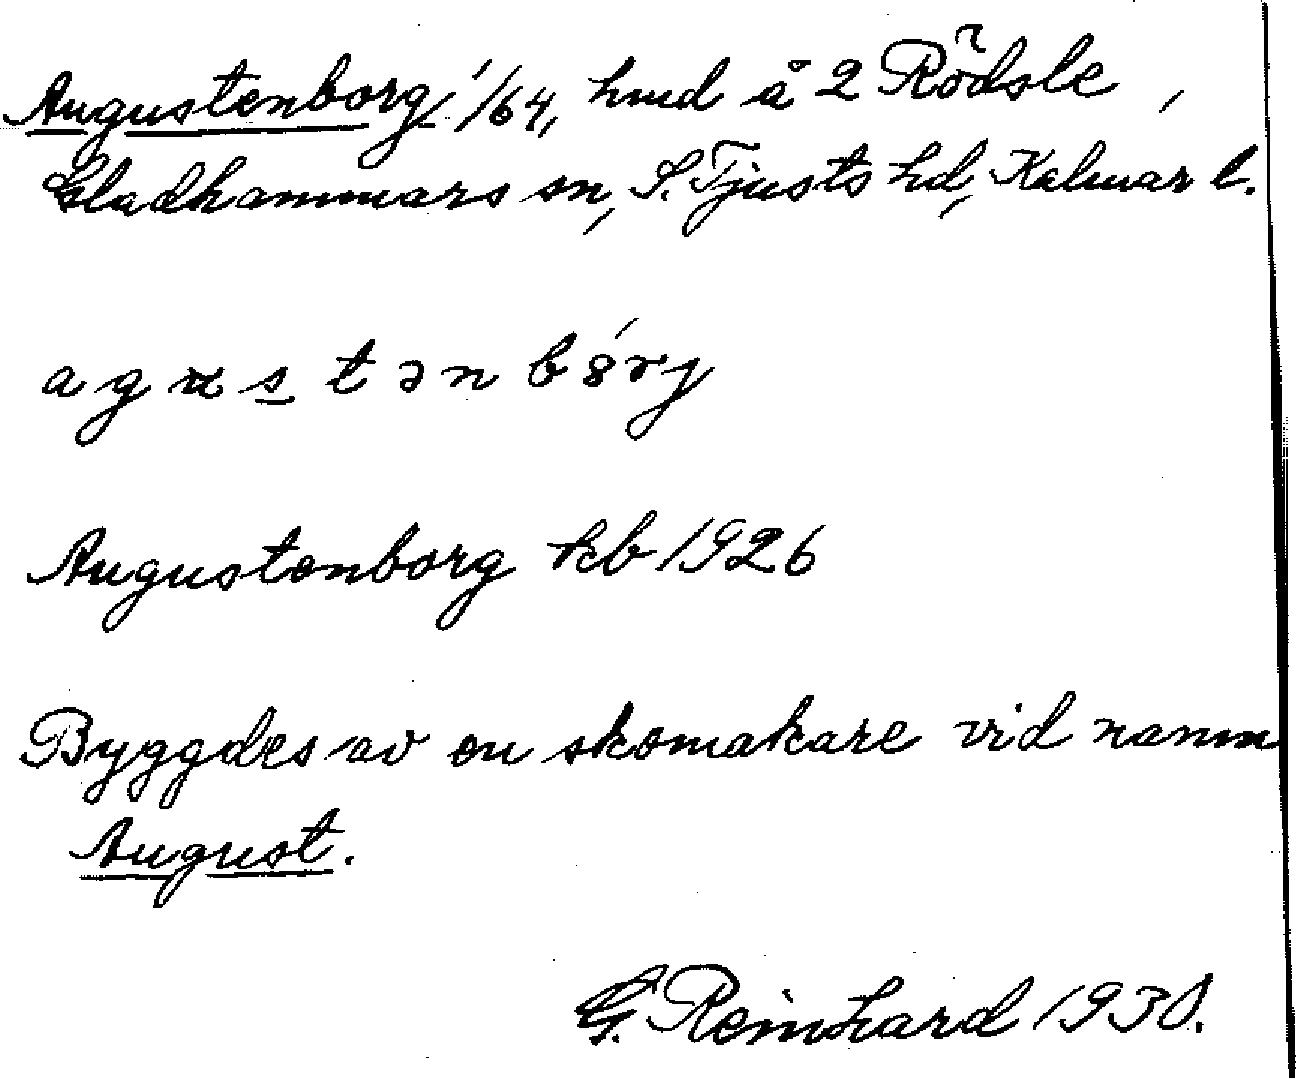 Augustenborg 1/64, hmd å 2 Rödsle,
Gladhammars sn, S. Tjusts hd, Kalmar l.
agusstənbórj
Augustenborg kb 1926
Byggdes av en skomakare vid namn
August.
G. Reinhard 1930.